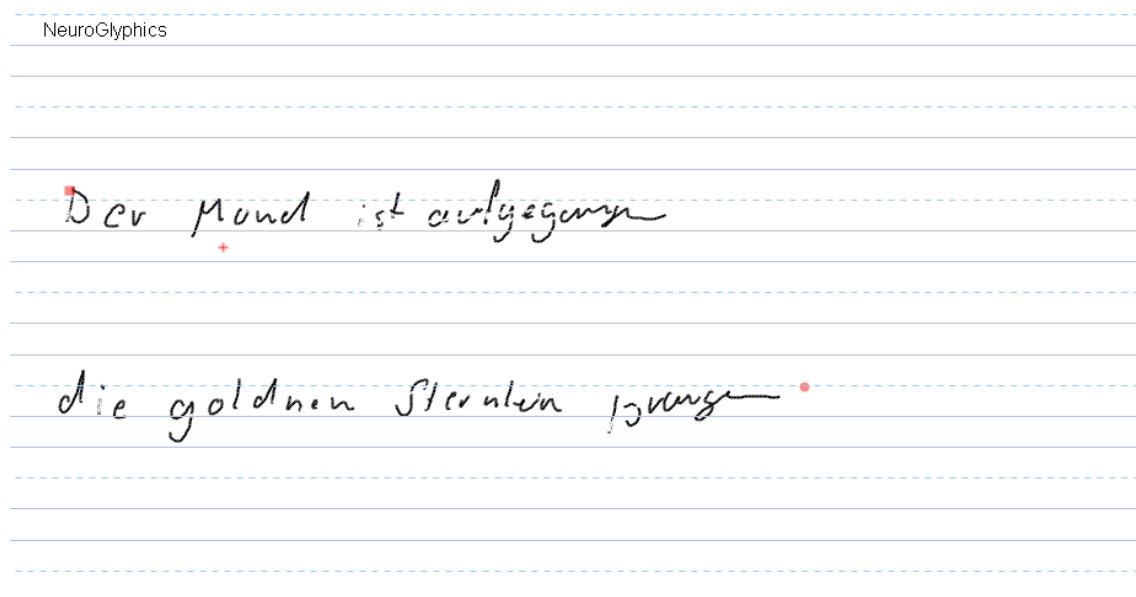 NeuroGlyphics
Der Mond ist aufgegangen
die goldnen Sternlein prangen